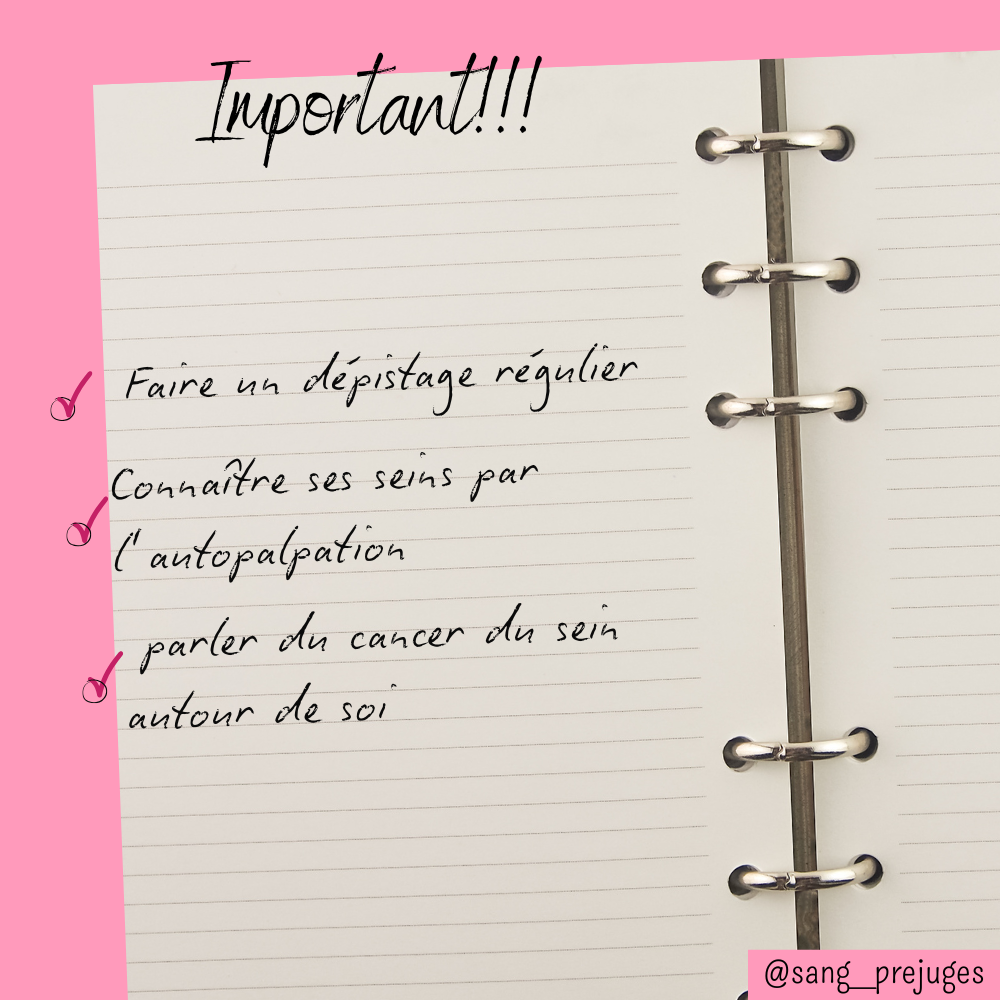 Important!!!
Faire un dépistage régulier
Connaître ses seins par
l'autopalpation
parler du cancer du sein
autour de soi
@sang__prejuges